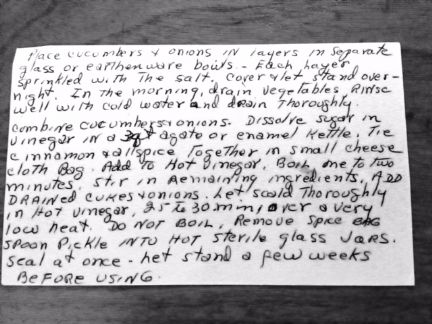 Place cucumbers & onions in layers in separate
glass or earthenware bowls - Each layer
sprinkled with The salt. Cover & let stand over-
night. In the morning, drain vegetables. Rinse
well with cold water and drain Thoroughly.
Combine cucumbers & onions. Dissolve sugar in
vinegar in a 3qt agate or enamel Kettle. Tie
cinnamon & allspice Together in small cheese
cloth Bag. Add To Hot vinegar. Boil one to two
minutes. Stir in Remaining ingredients. ADD
DRAINed cukes & onions. Let scald Thoroughly
in Hot vinegar, 25 to 30 min over a very
low heat. Do NOT BOIL. Remove Spice
Spoon Pickle INTO HOT sterile glass JARS.
Seal at once - Let stand a few weeks
BeFORE USING.